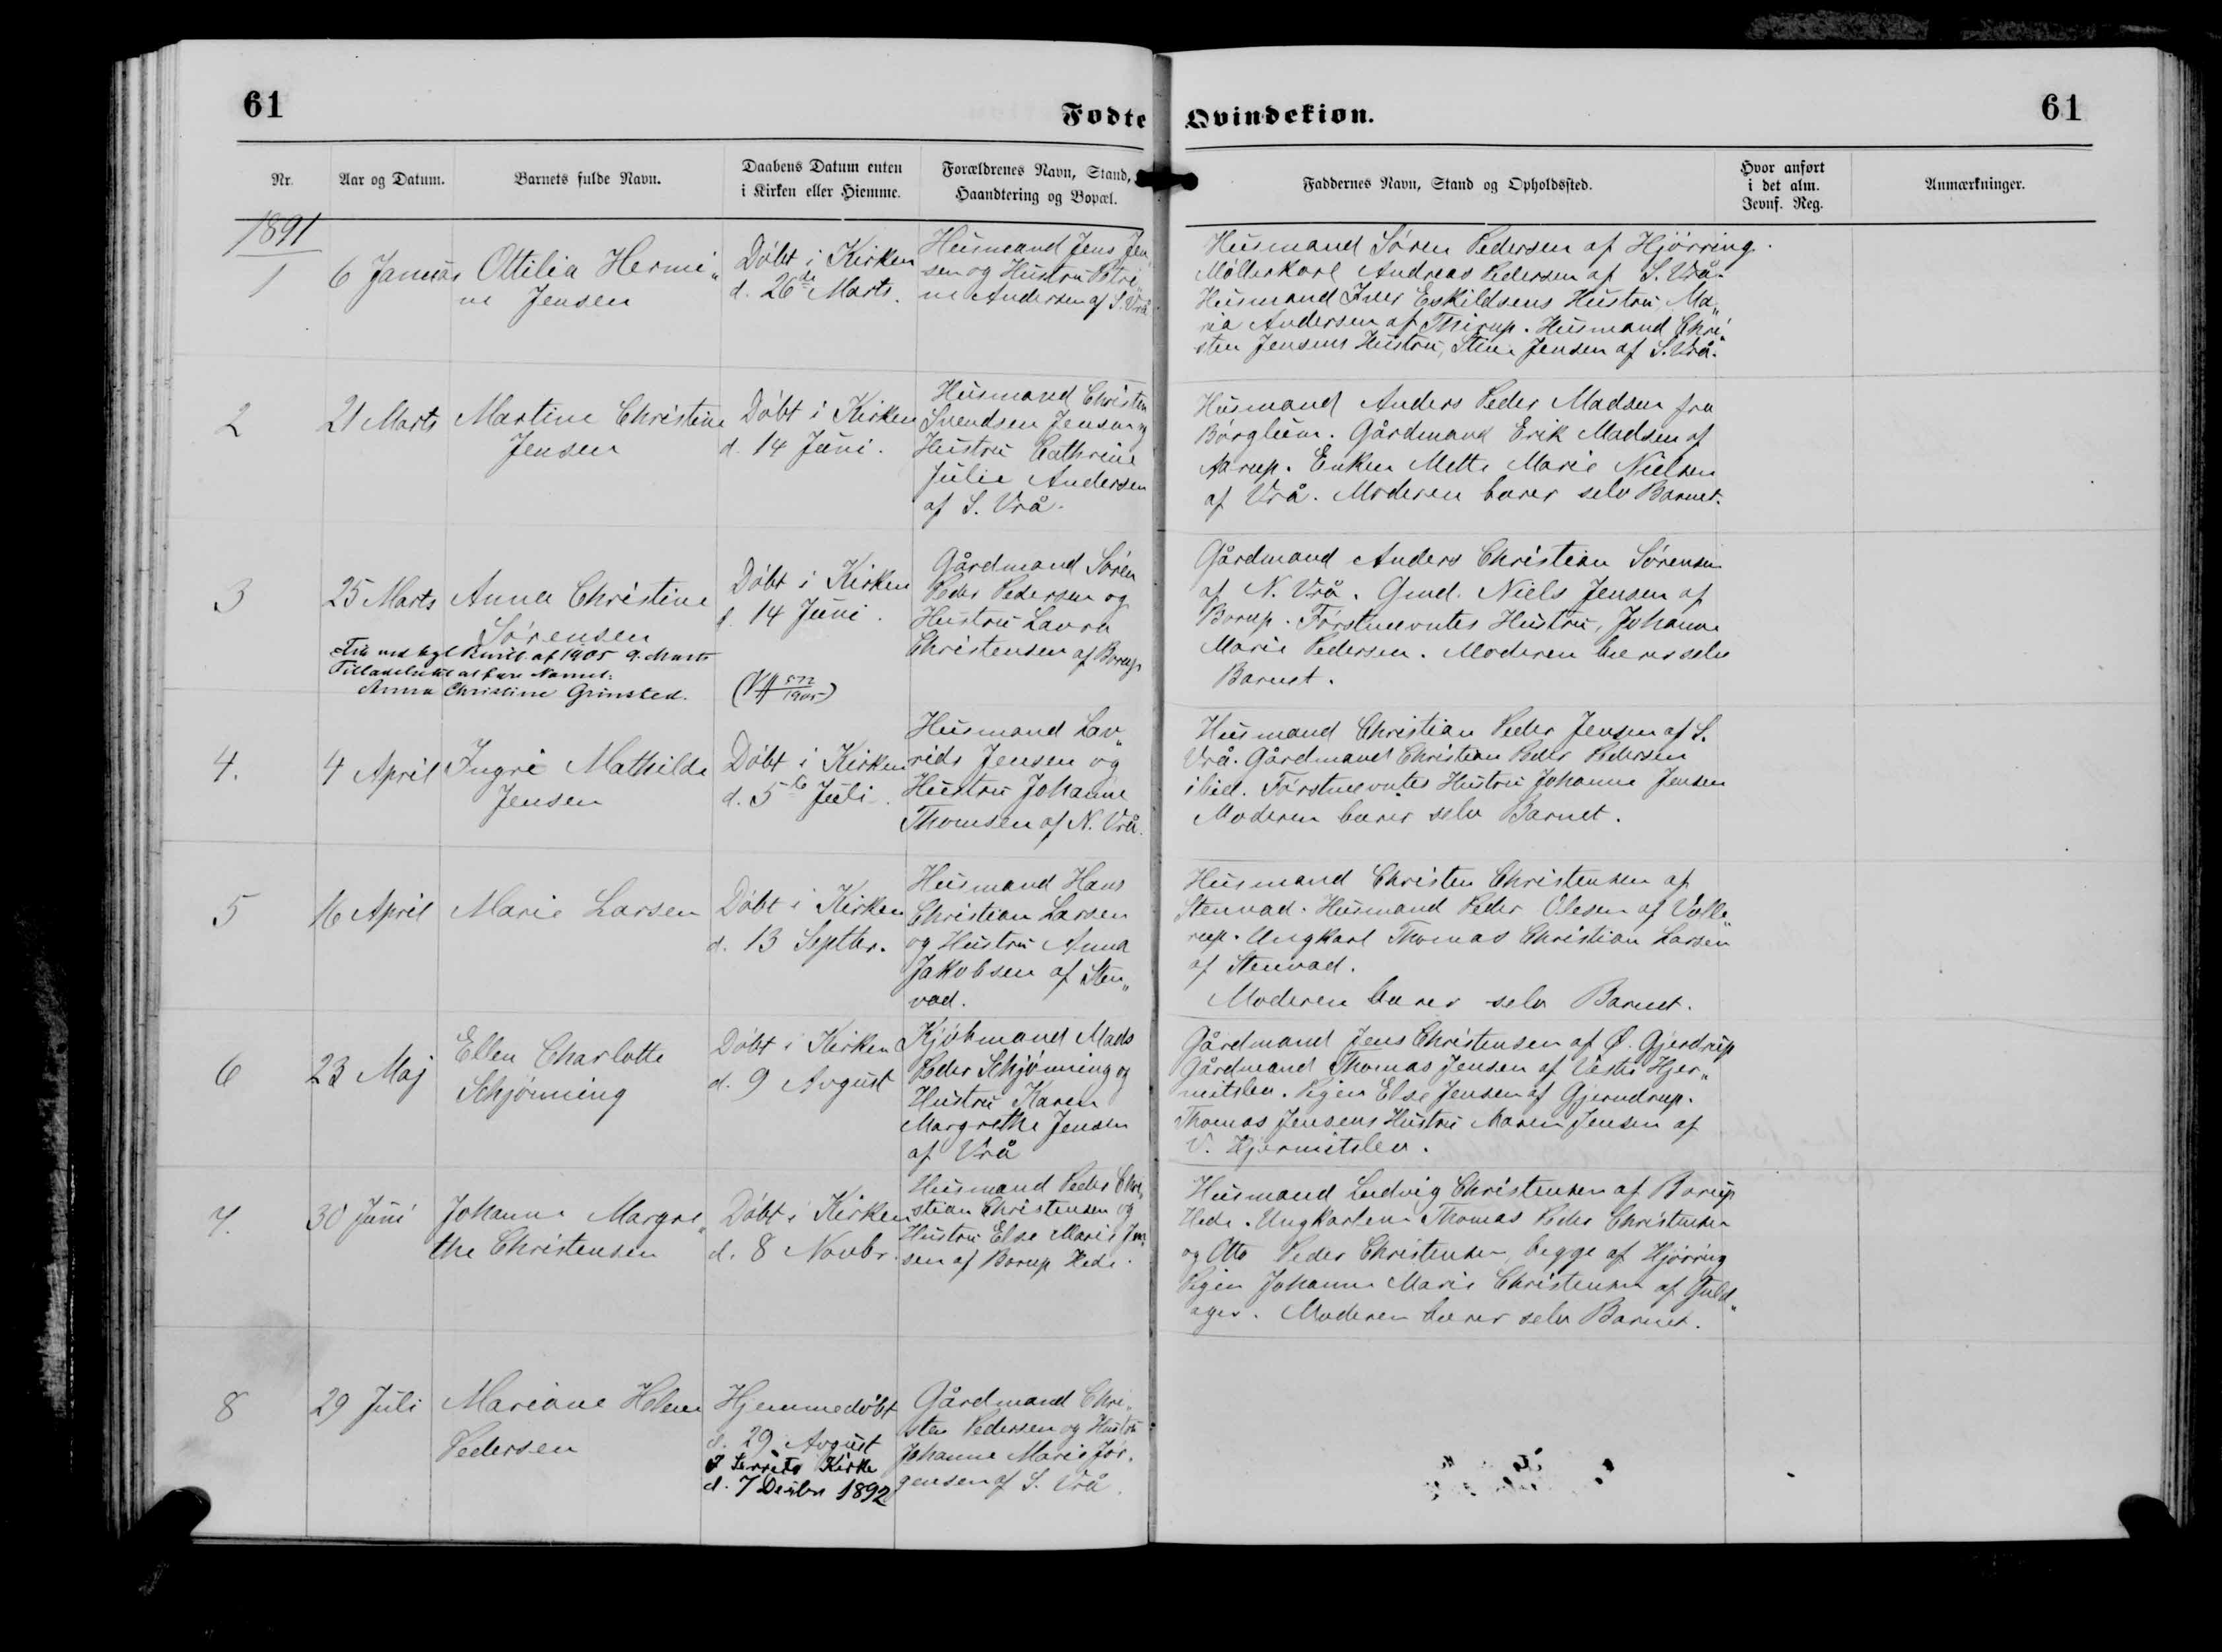 61
Fødte
Qvindekiøn.
61
Nr.
Aar og Datum.
Barnets fulde Navn.
Daabens Datum enten
i Kirken eller Hiemme.
Forældrenes Navn, Stand,
Haandtering og Bopæl.
Faddernes Navn, Stand og Opholdssted.
Hvor anført
i det alm.
Jevnf. Reg.
Anmærkninger.
1891
1
6 Januar
Ottilia Hermi„
ne Jensen
Döbt i Kirken
d. 26de Marts.
Husmand Jens Jen„
sen og Hustru Petri„
ne Andersen af S. Vrå
Husmand Sören Pedersen af Hjörring.
Möllerkarl Andreas Pedersen af S. Vrå.
Husmand Iver Eskildsens Hustru, Ma„
ria Andersen af Thirup. Husmand Chri„
sten Jensens Hustru, Stine Jensen af S. Vrå.
2
21 Marts
Martine Christine
Jensen
Döbt i Kirken
d. 14 Juni.
Husmand Christen
Svendsen Jensen og
Hustru Cathrine
Julie Andersen
af S. Vrå.
Husmand Anders Peder Madsen fra
Börglum. Gårdmand Erik Madsen af
Aarup. Enken Mette Marie Nielsen
af Vrå. Moderen bærer selv Barnet.
3
25 Marts
Anna Christine
Sörensen
Fik ved kgl Bevil. af 1905 9. Marts
Tilladelse til at føre Navnet:
Anna Christine Grinsted.
Döbt i Kirken
d. 14 Juni.
1905)
Gårdmand Sören
Peder Pedersen og
Hustru Laura
Christensen af Borup
Gårdmand Anders Christian Sörensen
af N. Vrå. Gmd. Niels Jensen af
Borup. Förstnevntes Hustru, Johanne
Marie Pedersen. Moderen bærer selv
Barnet.
4.
4 April
Ingri Mathilde
Jensen
Döbt i Kirken
d. 5te Juli.
Husmand Lav„
rids Jensen og
Hustru Johanne
Thomsen af N. Vrå.
Husmand Christian Peder Jensen af S.
Vrå. Gårdmand Christian Peder Pedersen
ibid. Förstnevntes Hustru Johanne Jensen
Moderen bærer selv Barnet.
5
16 April
Marie Larsen
Döbt i Kirken
d. 13 Septbr.
Husmand Hans
Christian Larsen
og Hustru Anna
Jakobsen af Sten„
vad.
Husmand Christen Christensen af
Stenvad. Husmand Peder Olesen af Volle„
rup. Ungkarl Thomas Christian Larsen
af Stenvad.
Moderen bærer selv Barnet.
6
23 Maj
Ellen Charlotte
Schjönning
Döbt i Kirken
d. 9 August
Kjöbmand Mads
Peder Schjönning og
Hustru Karen
Margrethe Jensen
af Vrå
Gårdmand Jens Christensen af Ø. Gjerdrup
Gårdmand Thomas Jensen af Vester Hjer„
mitslev. Pigen Else Jensen af Gjerndrup.
Thomas Jensens Hustru Maren Jensen af
V. Hjermitslev.
7.
30 Juni
Johanne Margre„
the Christensen
Döbt i Kirken
d. 8 Novbr.
Husmand Peder Chri„
stian Christensen og
Hustru Else Marie Jen„
sen af Borup Hede.
Husmand Ludvig Christensen af Borup
Hede. Ungkarlene Thomas Peder Christensen
og Otto Peder Christensen, begge af Hjörring
Pigen Johanne Marie Christensen af Guld„
ager. Moderen bærer selv Barnet.
8
29 Juli
Mariane Helene
Pedersen
Hjemmedöbt
d. 29 August
I Serrits Kirke
d. 7 Decbr 1892
Gårdmand Chri„
sten Pedersen og Hustru
Johanne Marie Jör„
gensen af S. Vrå.